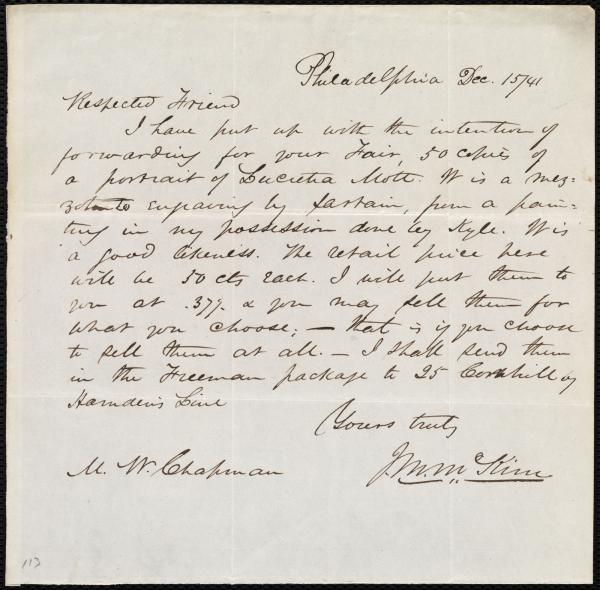 Philadelphia Dec. 15/41
Respected Friend
I have put up with the intention of
forwarding for your Fair, 50 copies of
a portrait of Lucretia Mott. It is a mez-
zotinto engraving by Sartain, from a pain-
ting in my possession done by Kyle. It is
a good likeness. The retail price here
will be 50 cts each. I will put them to
you at .37½ & you may sell them for
what you choose; — that is if you choose
to sell them at all. — I shall send them
in the Freeman package to 25 Cornhill by
Harnden's Line
Yours truly
J. M. McKim
M. W. Chapman
113